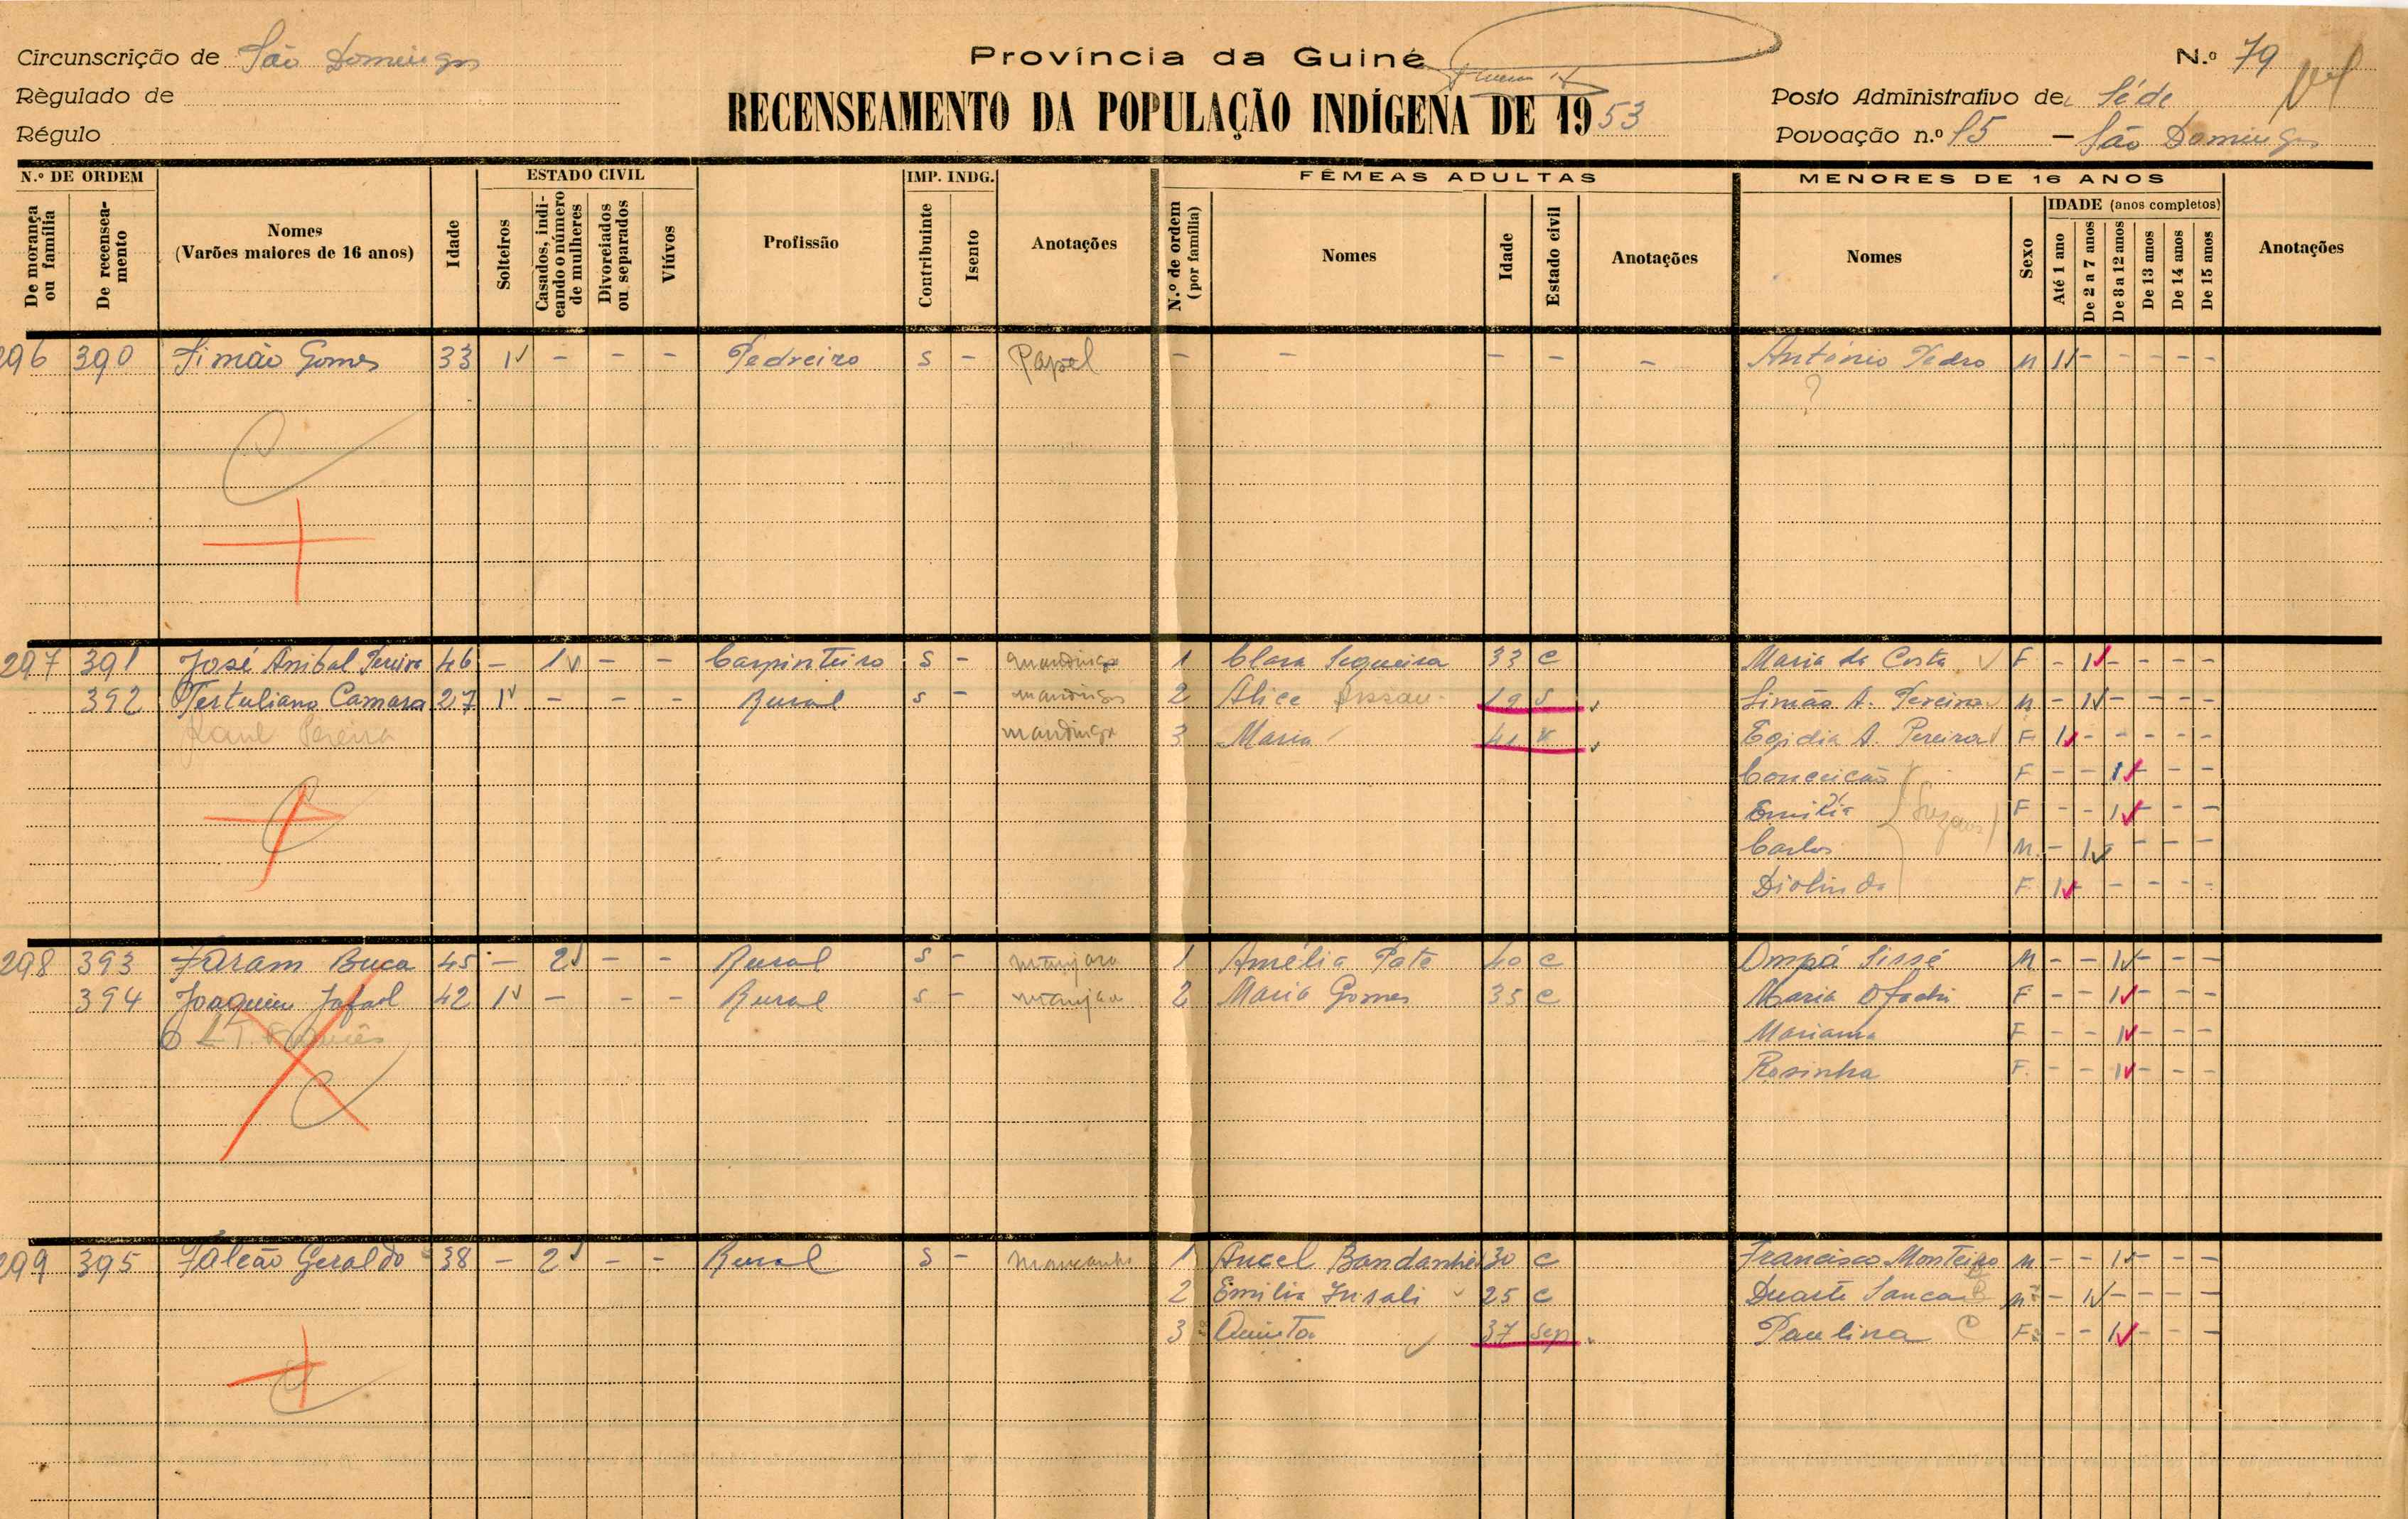 Circunscrição de São Domingos
Règulado de
Régulo
Província da Guiné
RECENSEAMENTO DA POPULAÇÃO INDÍGENA DE 1953
N.º 79
Posto Administrativo de Séde
Povoação n.º 15 — São Domingos
N.º DE ORDEM
De morança ou família
De recenseamento
Nomes
(Varões maiores de 16 anos)
Idade
ESTADO CIVIL
Solteiros
Casados, indicando o número de mulheres
Divorciados ou separados
Viúvos
Profissão
IMP. INDG.
Contribuinte
Isento
Anotações
FÊMEAS ADULTAS
N.º de ordem (por família)
Nomes
Idade
Estado civil
Anotações
MENORES DE 16 ANOS
Nomes
Sexo
IDADE (anos completos)
Até 1 ano
De 2 a 7 anos
De 8 a 12 anos
De 13 anos
De 14 anos
De 15 anos
Anotações
296 390 Simão Gomes 33 1 - - - Pedreiro S - Papel - - - - - António Pedro M 1 - - - - -
?
297 391 José Anibal Pereira 46 - 1 - - Carpinteiro S - mandinga 1 Clara Sequeira 33 C Maria da Costa F - 1 - - - -
392 Tertuliano Camara 27 1 - - - Rural S - mandinga 2 Alice 19 S Simão A. Pereira M - 1 - - - -
Raul Pereira mandinga 3 Maria 41 V Egidia A. Pereira F 1 - - - - -
Conceição F - - 1 - - -
Emília F - - 1 - - -
Carlos M - 1 - - - -
Diolinda F 1 - - - - -
298 393 Faram Buca 45 - 2 - - Rural S - 1 Amélia Pate 40 C Ompá Sissé M - - 1 - - -
394 Joaquim 42 1 - - - Rural S - 2 Maria Gomes 35 C Maria F - - 1 - - -
Mariama F - - 1 - - -
Rosinha F - - 1 - - -
299 395 Falcão Geraldo 38 - 2 - - Rural S - 1 30 C Francisco Monteiro M - - 1 - - -
2 Emilia Insali 25 C Duarte Sanca M - 1 - - - -
3 Quinta 37 Sep. Paulina F - - 1 - - -